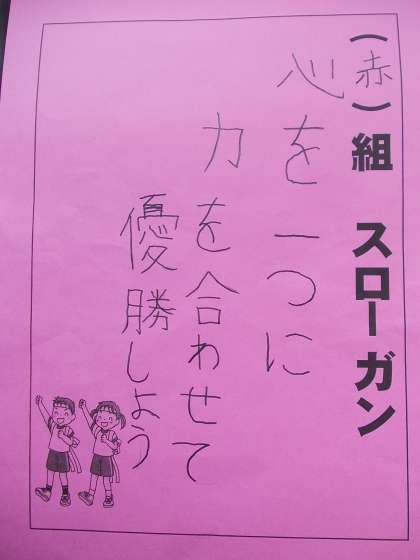 (赤)組 スローガン
心を一つに
力を合わせて
優勝しよう